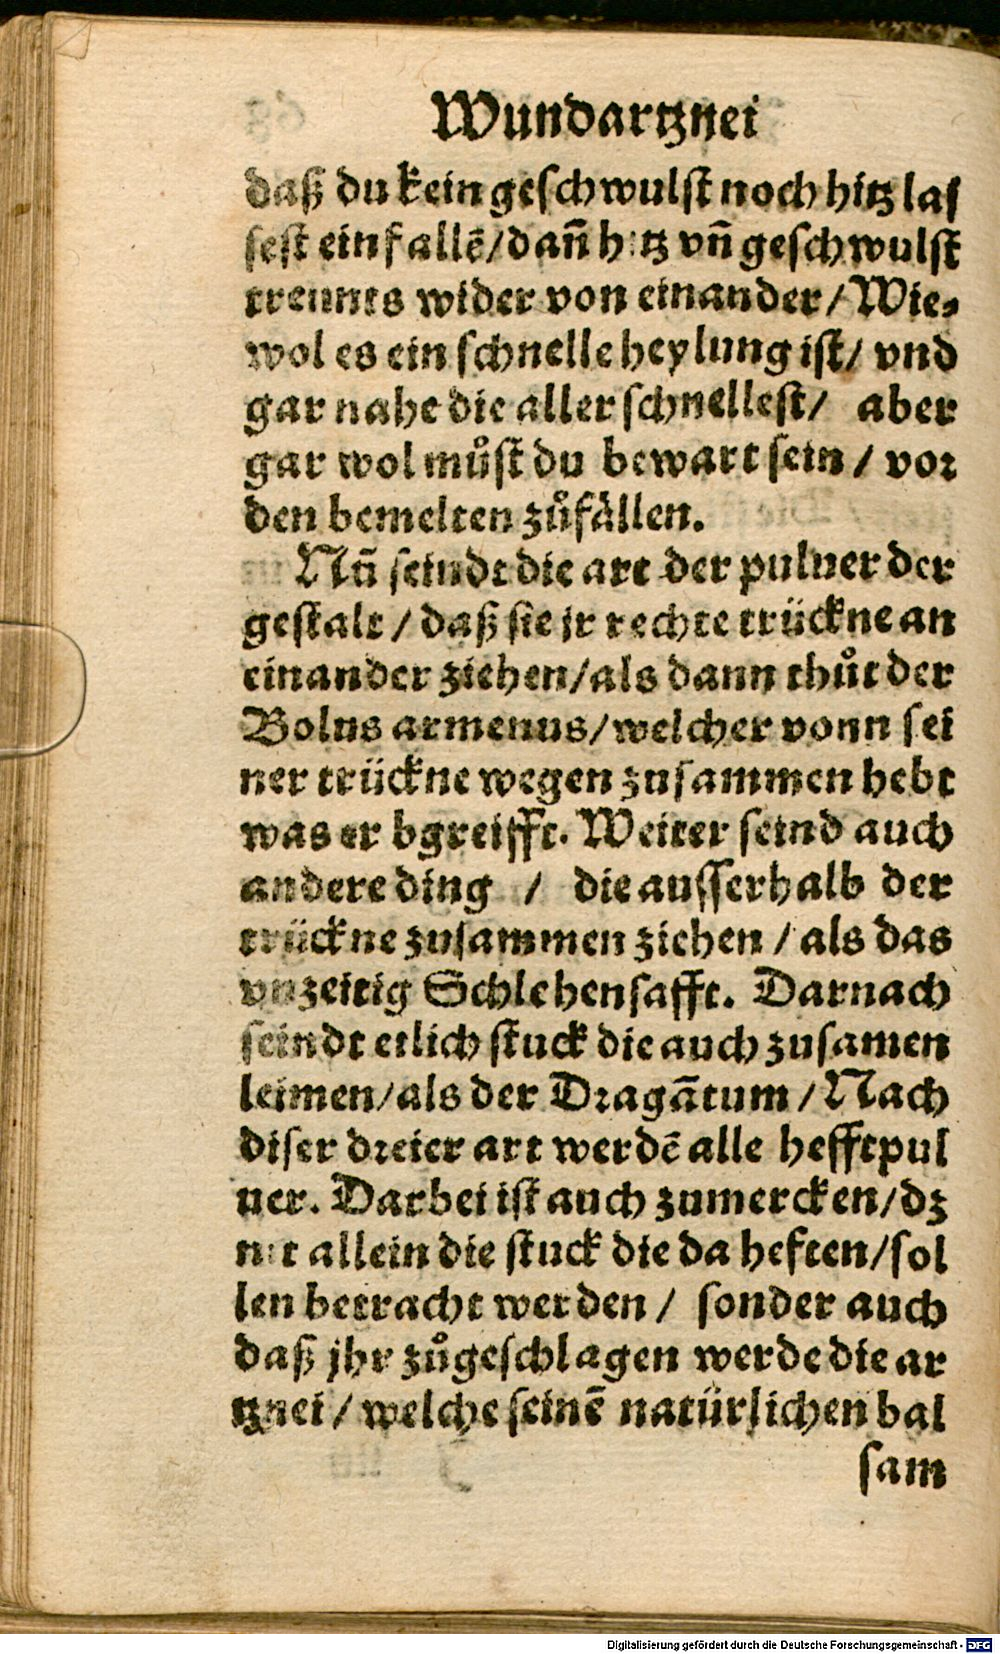 Wundartznei
daß du kein geschwulst noch hitz las
sest einfallē/dañ hitz vñ geschwulst
trennts wider von einander/Wie-
wol es ein schnelle heylung ist/ vnd
gar nahe die aller schnellest/ aber
gar wol můst du bewart sein / vor
den bemelten zůfällen.
Nū seindt die art der puluer der
gestalt / daß sie jr rechte trückne an
einander ziehen/als dann thůt der
Bolus armenus/welcher vonn sei
ner trückne wegen zusammen hebt
was er bgreifft. Weiter seind auch
andere ding / die ausserhalb der
trückne zusammen ziehen / als das
vnzeitig Schlehensafft. Darnach
seindt etlich stuck die auch zusamen
leimen/als der Dragātum / Nach
diser dreier art werdē alle hefftpul
uer. Darbei ist auch zumercken/dz
nit allein die stuck die da heften/sol
len betracht werden / sonder auch
daß jhr zůgeschlagen werde die ar
tznei / welche seinē natürlichen bal
sam
Digitalisierung gefördert durch die Deutsche Forschungsgemeinschaft - DFG